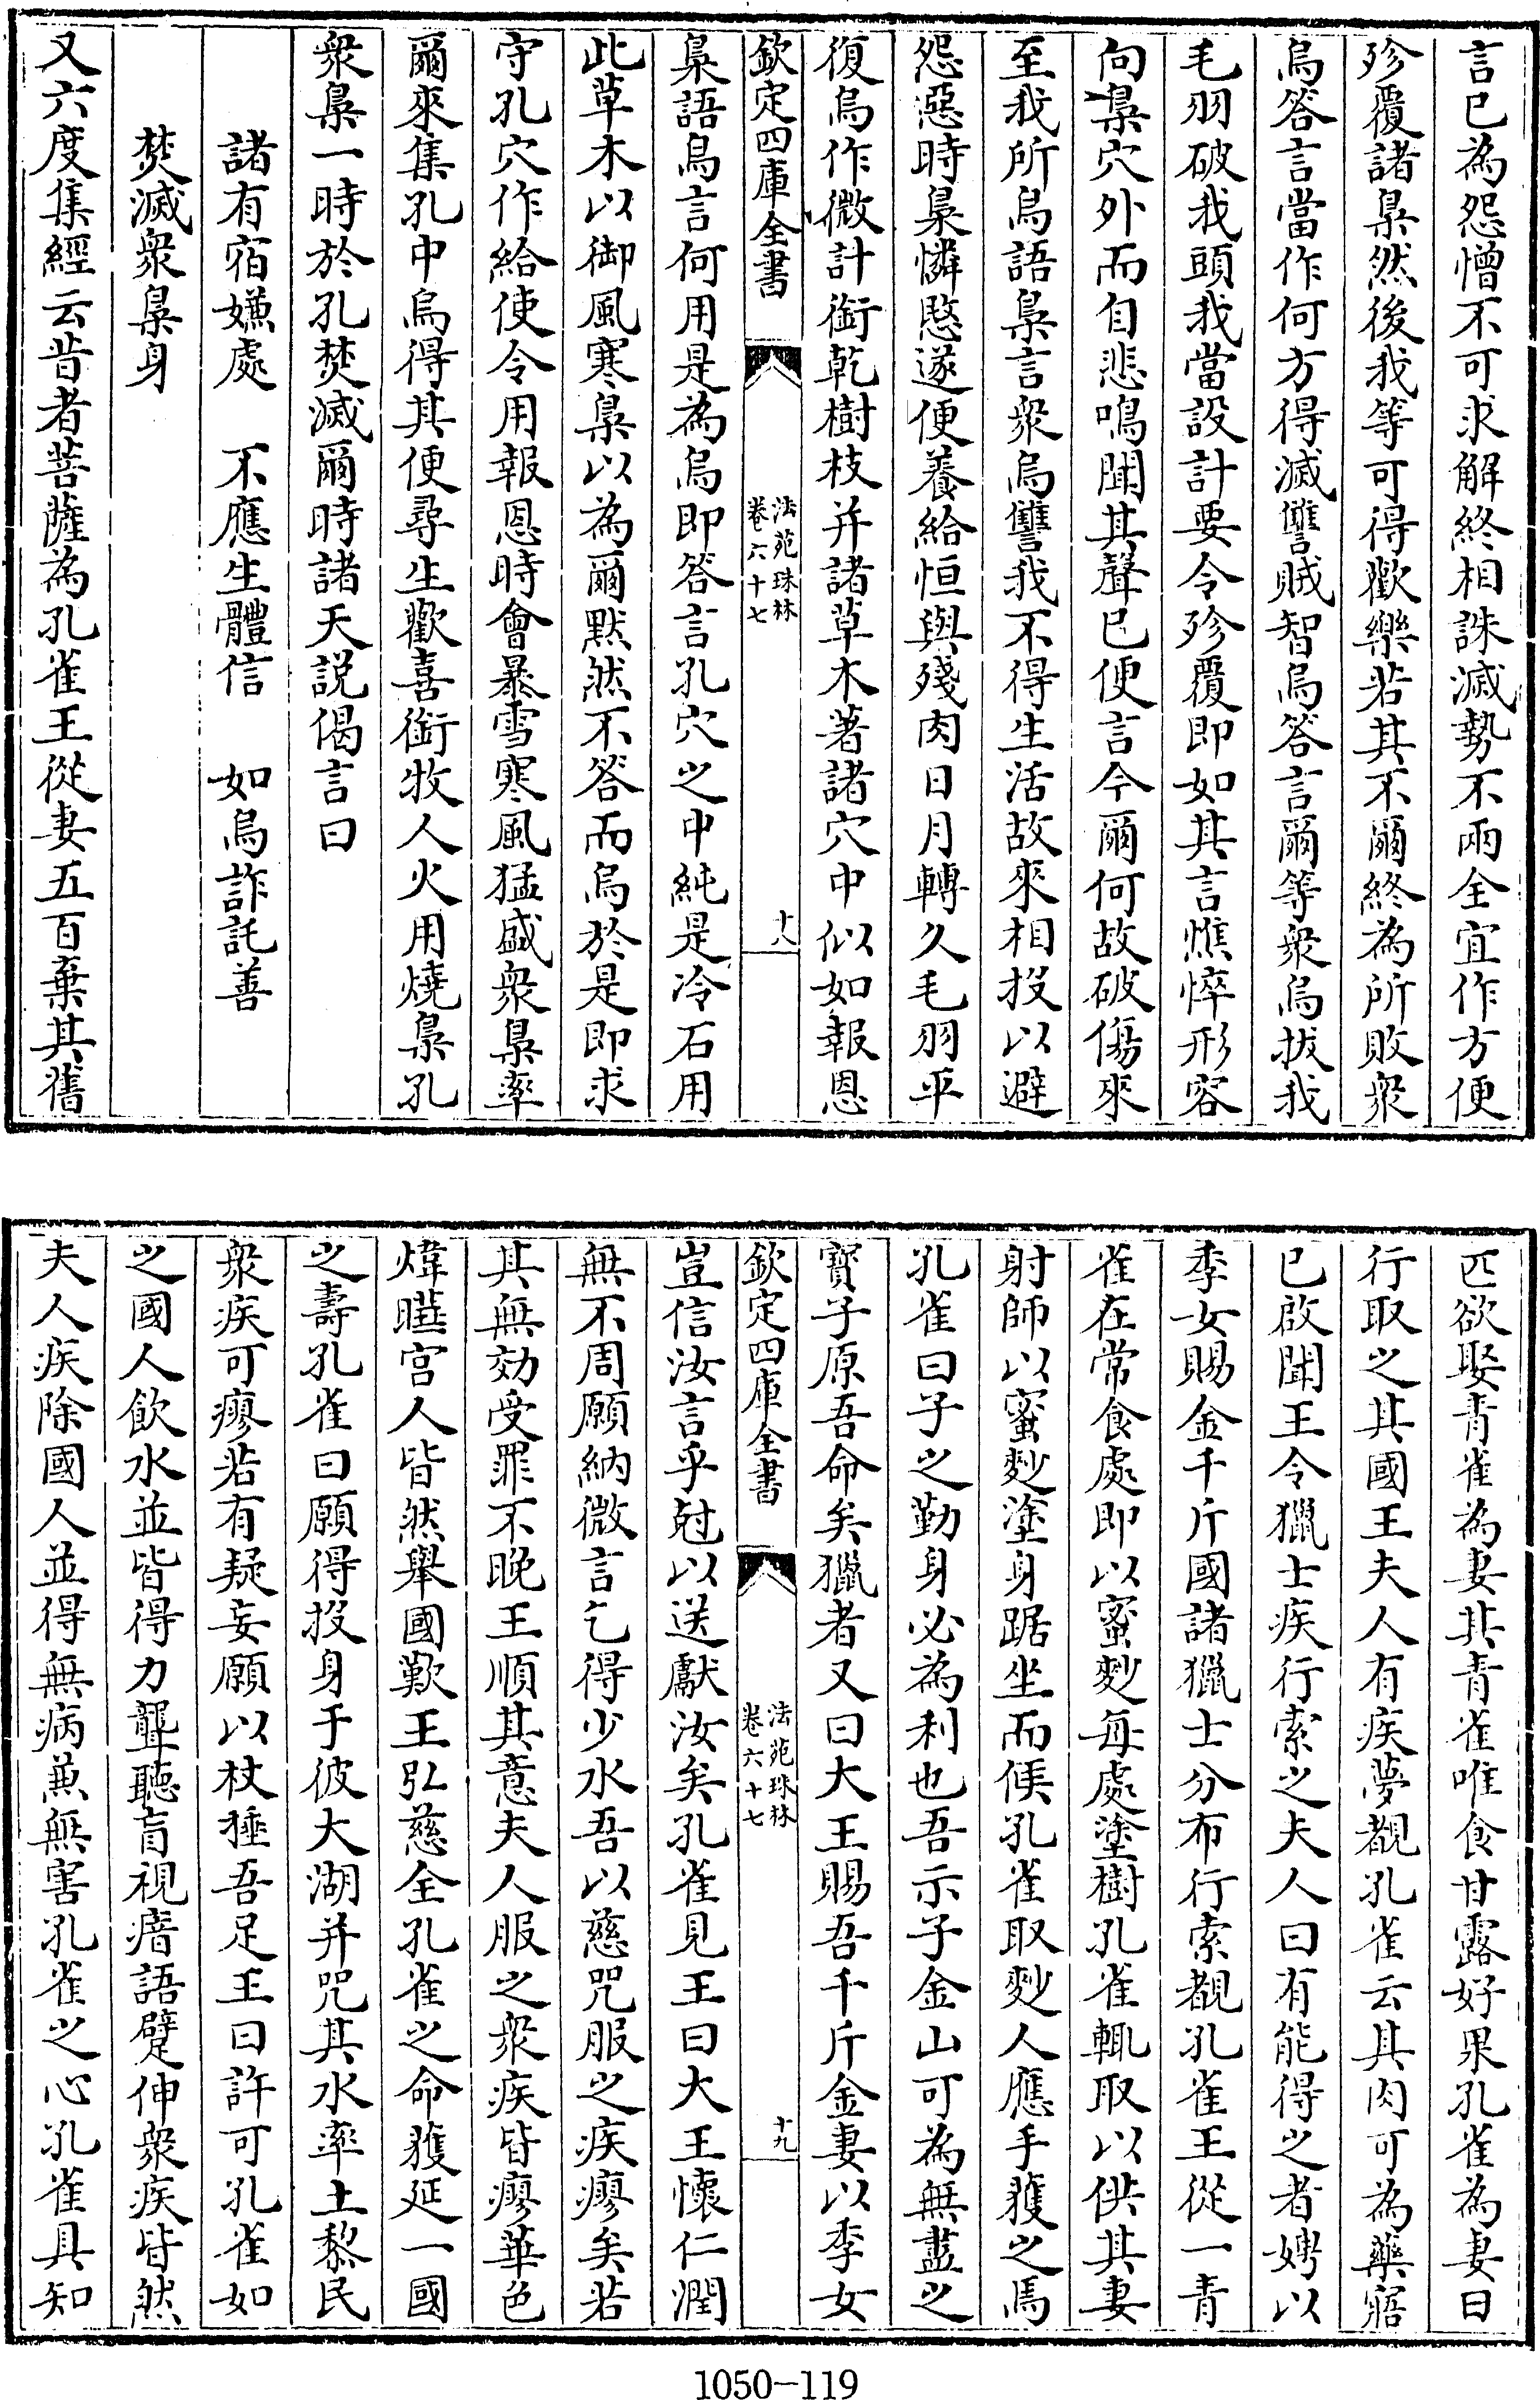 言已為怨憎不可求解終相誅滅勢不兩全宜作方便
殄覆諸梟然後我等可得歡樂若其不爾終為所敗衆
烏答言當作何方得滅讐賊智烏答言爾等衆烏拔我
毛羽破我頭我當設計要令殄覆即如其言憔悴形容
向梟穴外而自悲鳴聞其聲已便言今爾何故破傷來
至我所烏語梟言衆烏讐我不得生活故來相投以避
怨惡時梟憐愍遂便養給恒與殘肉日月轉久毛羽平
復烏作微計銜乾樹枝并諸草木著諸穴中似如報恩
欽定四庫全書
法苑珠林
卷六十七
十八
梟語烏言何用是為烏即答言孔穴之中純是冷石用
此草木以御風寒梟以為爾黙然不答而烏於是即求
守孔穴作給使令用報恩時會暴雪寒風猛盛衆梟率
爾來集孔中烏得其便尋生歡喜銜牧人火用燒梟孔
衆梟一時於孔焚滅爾時諸天説偈言曰
諸有宿嫌處　不應生體信　如烏詐託善
焚滅衆梟身
又六度集經云昔者菩薩為孔雀王從妻五百棄其舊
匹欲娶青雀為妻其青雀唯食甘露好果孔雀為妻日
行取之其國王夫人有疾夢覩孔雀云其肉可為藥寤
已啟聞王令獵士疾行索之夫人曰有能得之者娉以
季女賜金千斤國諸獵士分布行索覩孔雀王從一青
雀在常食處即以蜜麨每處塗樹孔雀輒取以供其妻
射師以蜜麨塗身踞坐而候孔雀取麨人應手獲之焉
孔雀曰子之勤身必為利也吾示子金山可為無盡之
寳子原吾命矣獵者又曰大王賜吾千斤金妻以季女
欽定四庫全書
法苑珠林
卷六十七
十九
豈信汝言乎尅以送獻汝矣孔雀見王曰大王懷仁潤
無不周願納微言乞得少水吾以慈咒服之疾瘳矣若
其無効受罪不晚王順其意夫人服之衆疾皆瘳華色
煒曄宫人皆然舉國歎王弘慈全孔雀之命獲延一國
之壽孔雀曰願得投身于彼大湖并咒其水率土黎民
衆疾可瘳若有疑妄願以杖捶吾足王曰許可孔雀如
之國人飲水並皆得力聾聽盲視瘖語躄伸衆疾皆然
夫人疾除國人並得無病兼無害孔雀之心孔雀具知
1050-119